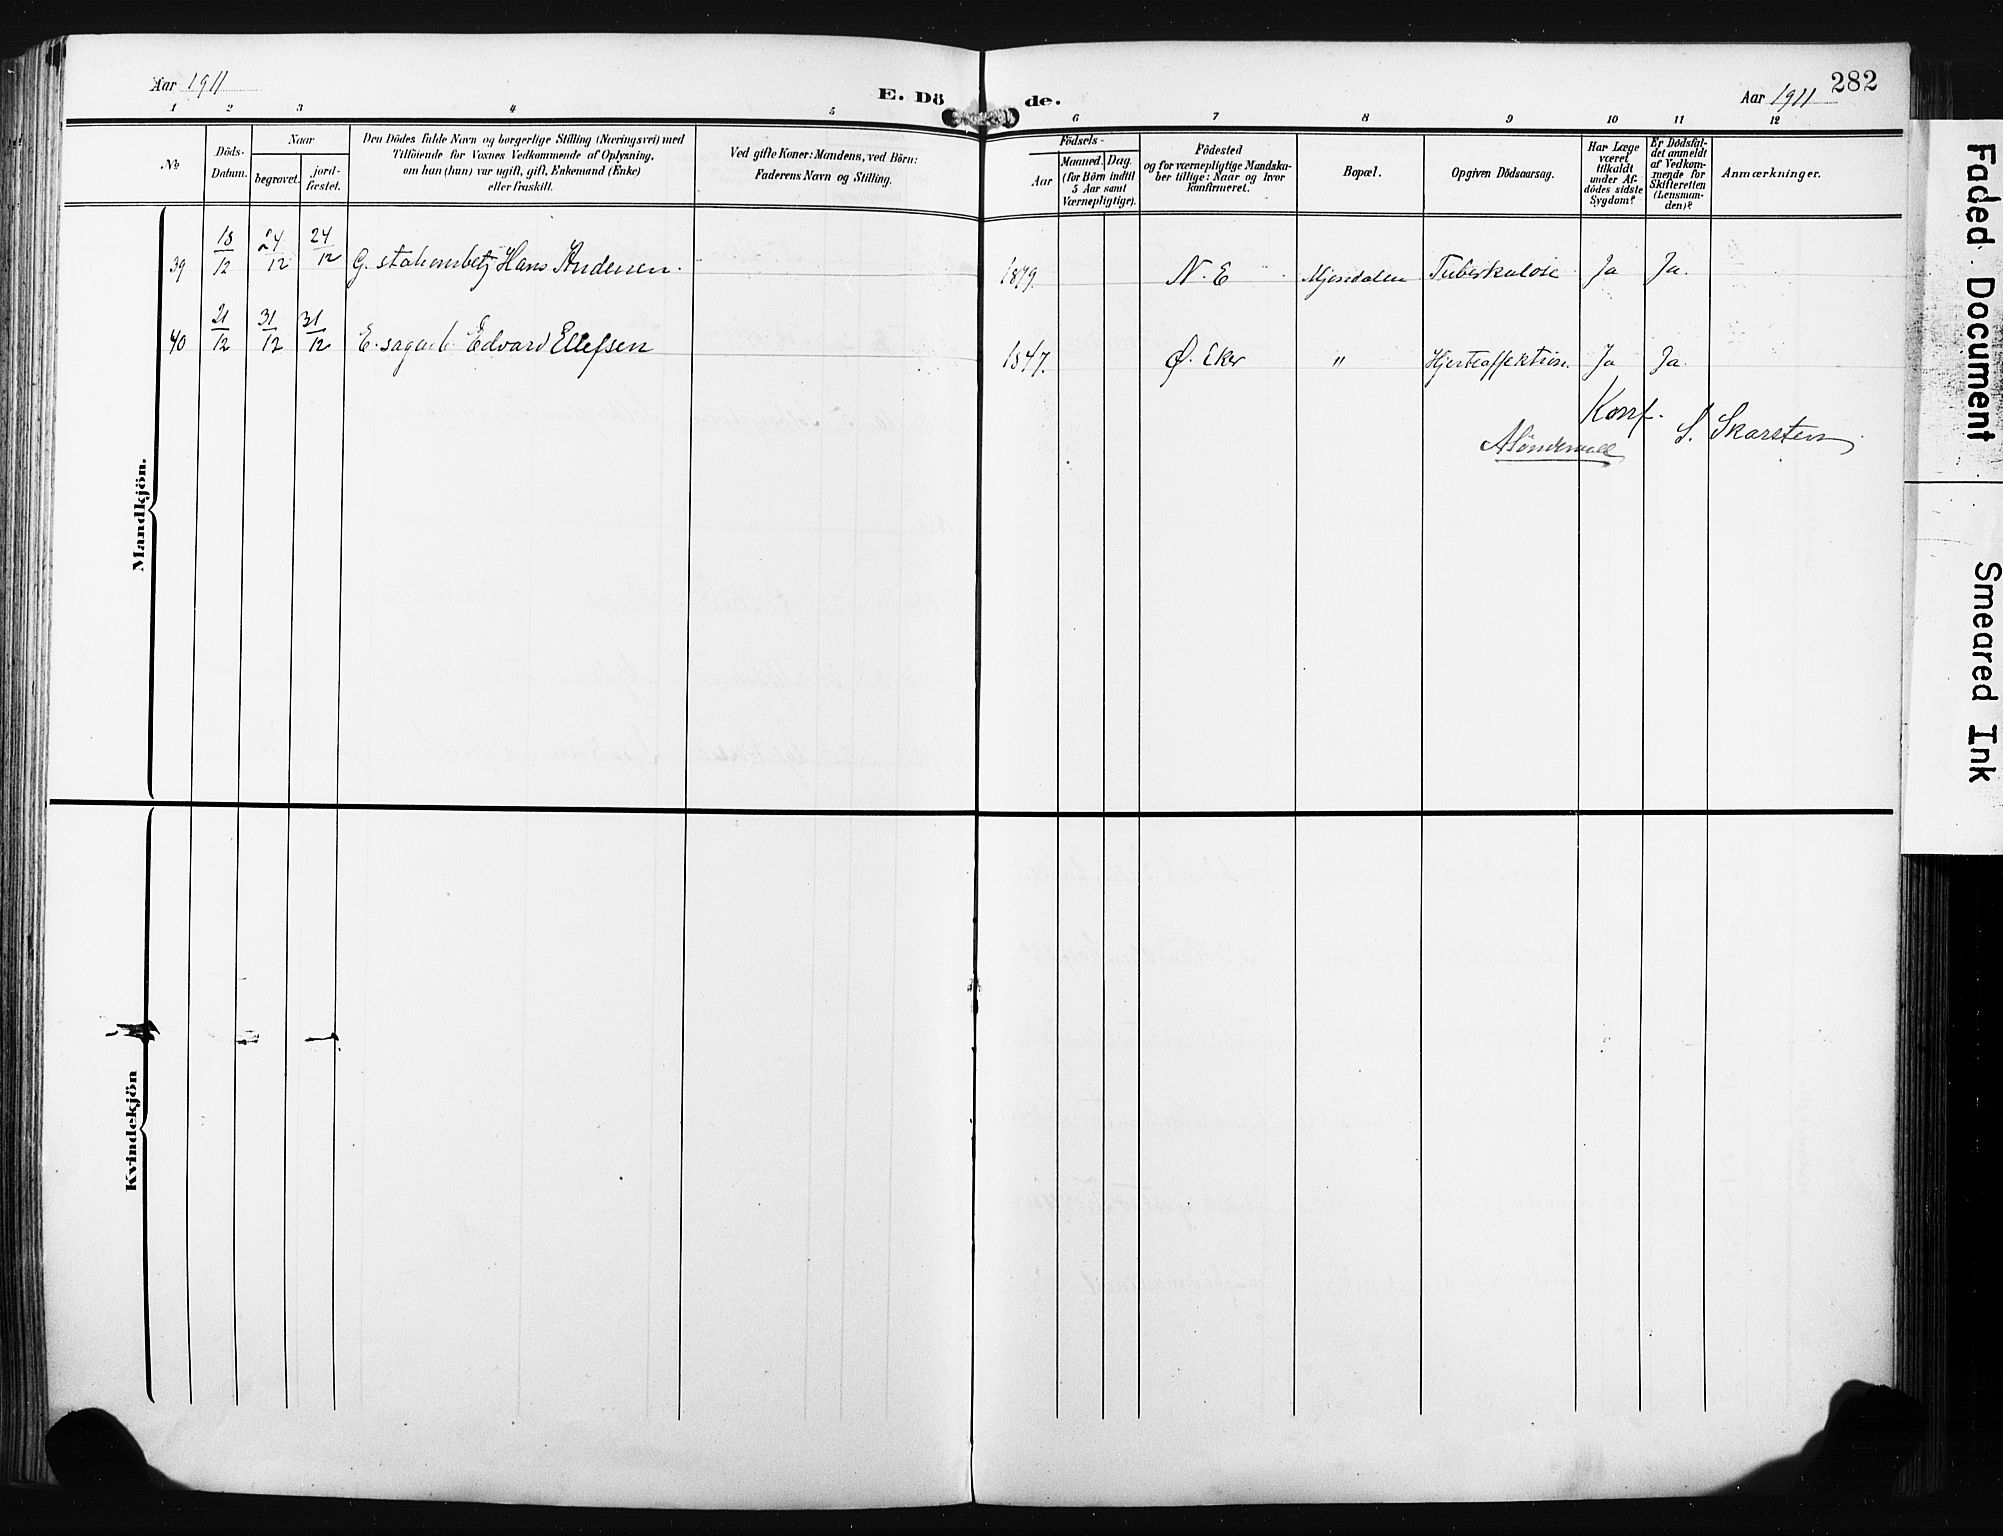 Aar 1911
E. Dö de.
Aar 1911
282
1 2 3 4 5 6 7 8 9 10 11 12
No.
Döds-
Datum.
Naar
begravet.
jord-
fæstet.
Den Dödes fulde Navn og borgerlige Stilling (Næringsvei) med
Tilföiende for Voxnes Vedkommende af Oplysning,
om han (hun) var ugift, gift, Enkemand (Enke)
eller fraskilt.
Ved gifte Koner: Mandens, ved Börn:
Faderens Navn og Stilling.
Födsels-
Aar
Maaned. Dag.
(for Börn indtil
5 Aar samt
Værnepligtige).
Födested
og for værnepligtige Mandska-
ber tillige: Naar og hvor
konfirmeret.
Bopæl.
Opgiven Dödsaarsag.
Har Læge
været
tilkaldt
under Af-
dödes sidste
Sygdom?
Er Dödsfal-
det anmeldt
af Vedkom-
mende for
Skifteretten
(Lensman-
den)?
Anmærkninger.
39 18/12 24/12 24/12 G. stationsbetj Hans Andersen. 1879. N. E Mjøndalen Tuberkulose Ja Ja.
40 21/12 31/12 31/12 E. sagarb. Edvard Ellefsen 1847. Ø. Eker " Hjerteaffektion. Ja Ja.
Konf.
S. Skarsten
Mandkjön.
Kvindekjön
Faded Document
Smeared Ink